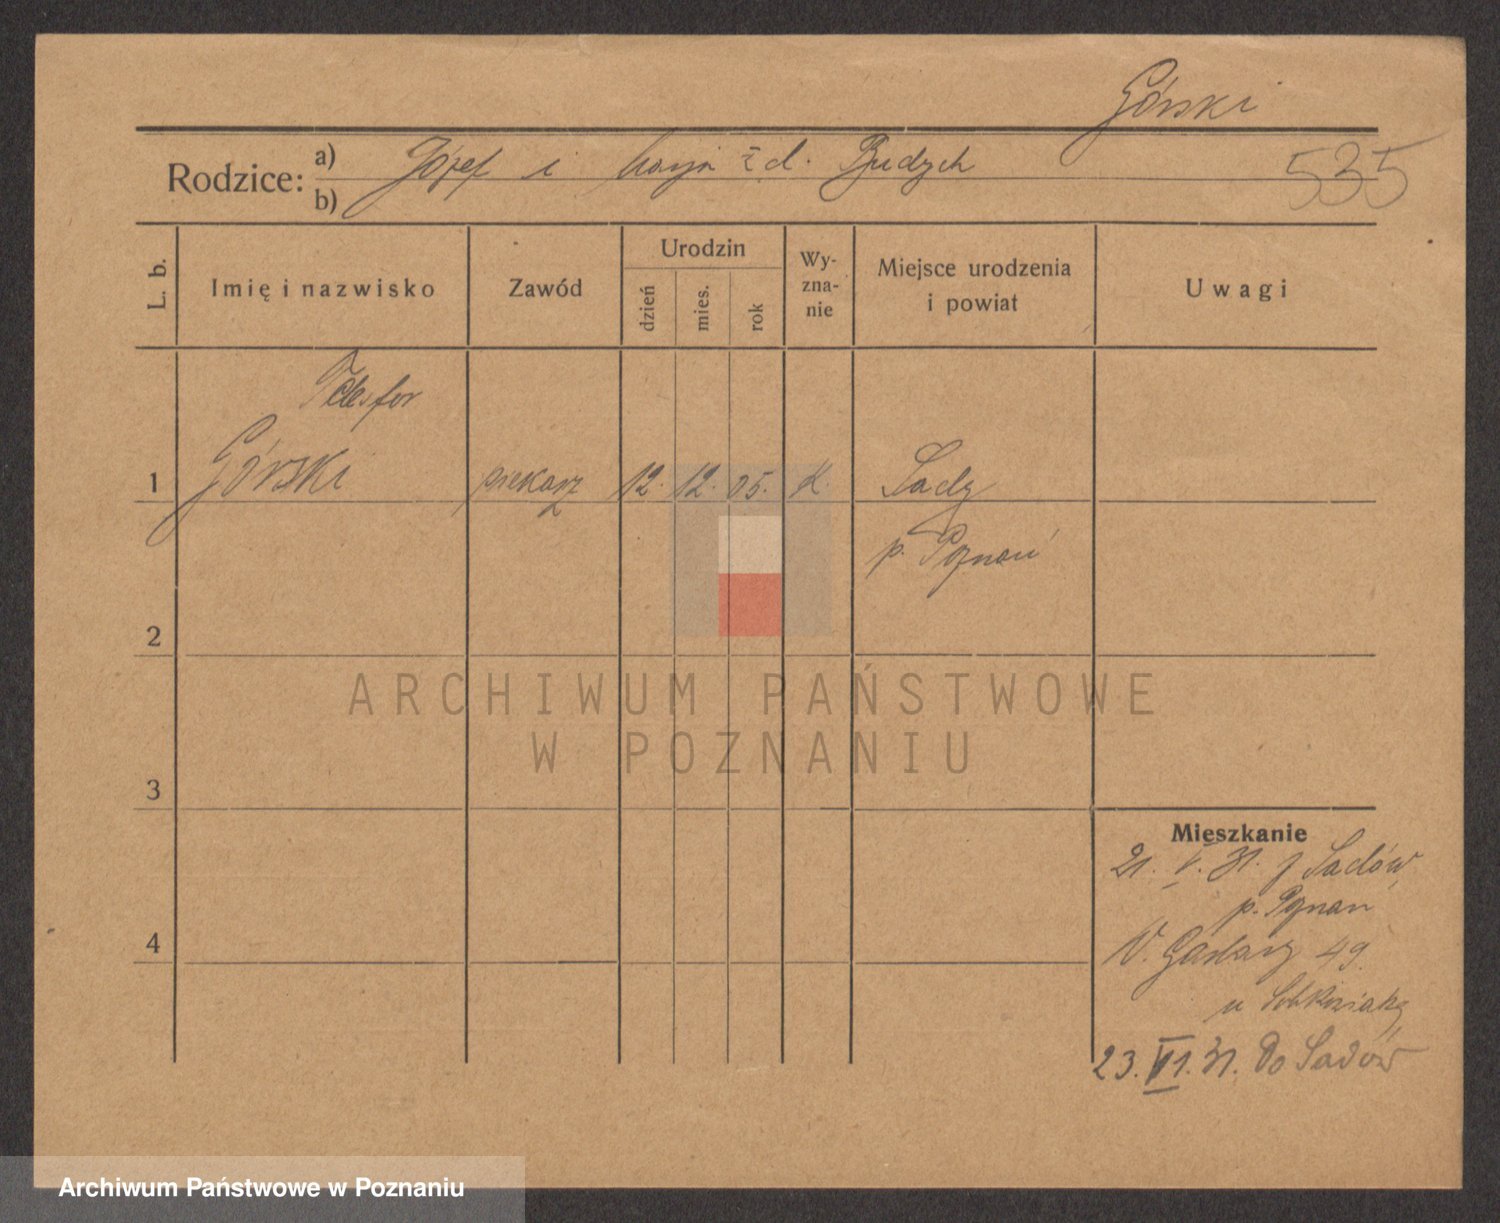 Górski
Rodzice: a) Józef i Marja z d. Budzych
b)
535
L. b.
Imię i nazwisko
Zawód
Urodzin
dzień
mies.
rok
Wy-
zna-
nie
Miejsce urodzenia
i powiat
Uwagi
Telesfor
1 Górski piekarz 12. 12. 05. k. Sady
p. Poznań
2
3
4
Mieszkanie
21. V. 31. z Sadów
p. Poznań
W. Garbary 49.
u
23. VI. 31. Do Sadów
ARCHIWUM PAŃSTWOWE
W POZNANIU
Archiwum Państwowe w Poznaniu